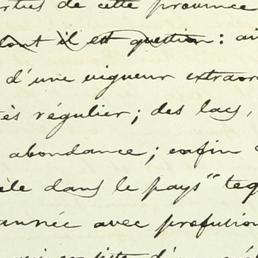 de cette province
dont il est question : ai
d'une vigueur extraor
très régulier ; des lacs,
abondance ; enfin
dans le pays" teq
année avec profusion